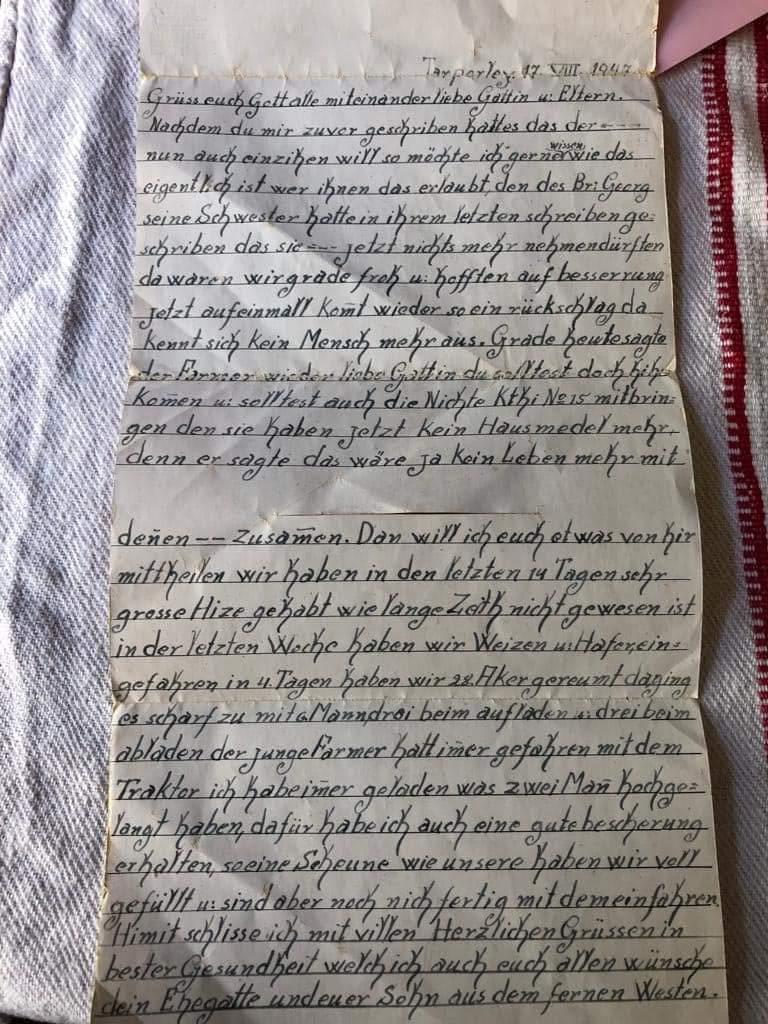 Tarporley. 17. VIII. 1947
Grüss euch Gott alle miteinander liebe Gattin u: Eltern.
Nachdem du mir zuvor geschriben hattes das der ----
nun auch einzihen will so möchte ich gerne wissen wie das
eigentlich ist wer ihnen das erlaubt, den des Br: Georg
seine Schwester hatte in ihrem letzten schreiben ge=
schriben das sie --- jetzt nichts mehr nehmen dürften
da waren wir grade froh u: hofften auf besserrung
jetzt aufeinmall kom̄t wieder so ein rückschlag da
kennt sich kein Mensch mehr aus. Grade heute sagte
der Farmer wieder liebe Gattin du solltest doch hihr
kom̄en u: solltest auch die Nichte Kthi No 15 mitbrin=
gen den sie haben jetzt kein Hausmedel mehr,
denn er sagte das wäre ja kein Leben mehr mit
den̄en -- zusam̄en. Dan will ich euch etwas von hir
mittheilen wir haben in den letzten 14 Tagen sehr
grosse Hize gehabt wie lange Zeith nicht gewesen ist
in der letzten Woche haben wir Weizen u: Hafer, ein=
gefahren in 4. Tagen haben wir 28. Aker gereumt da ging
es scharf zu mit 6 Mann, drei beim aufladen u: drei beim
abladen der junge Farmer hatt im̄er gefahren mit dem
Traktor ich habe im̄er geladen was zwei Man̄ hochge=
langt haben, dafür habe ich auch eine gute bescherung
erhalten, so eine Scheune wie unsere haben wir voll
gefüllt u: sind aber noch nich fertig mit dem einfahren.
Himit schlisse ich mit villen Herzlichen Grüssen in
bester Gesundheit welch ich auch euch allen wünsche
dein Ehegatte und euer Sohn aus dem fernen Westen.